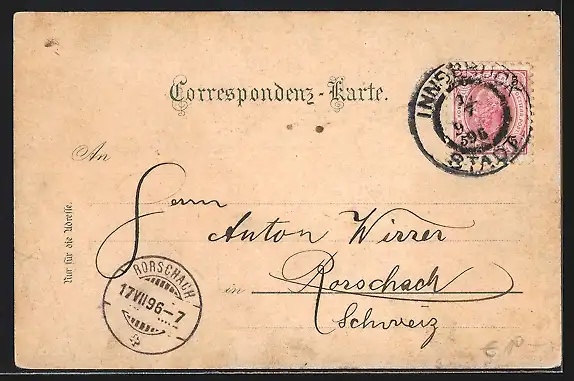 Correspondenz-Karte.
INNSBRUCK
96
STADT
An
Herrn
Anton Wirrer
in Rorschach
Schweiz
Nur für die Adresse.
RORSCHACH
17 VII 96-7
€ 10-